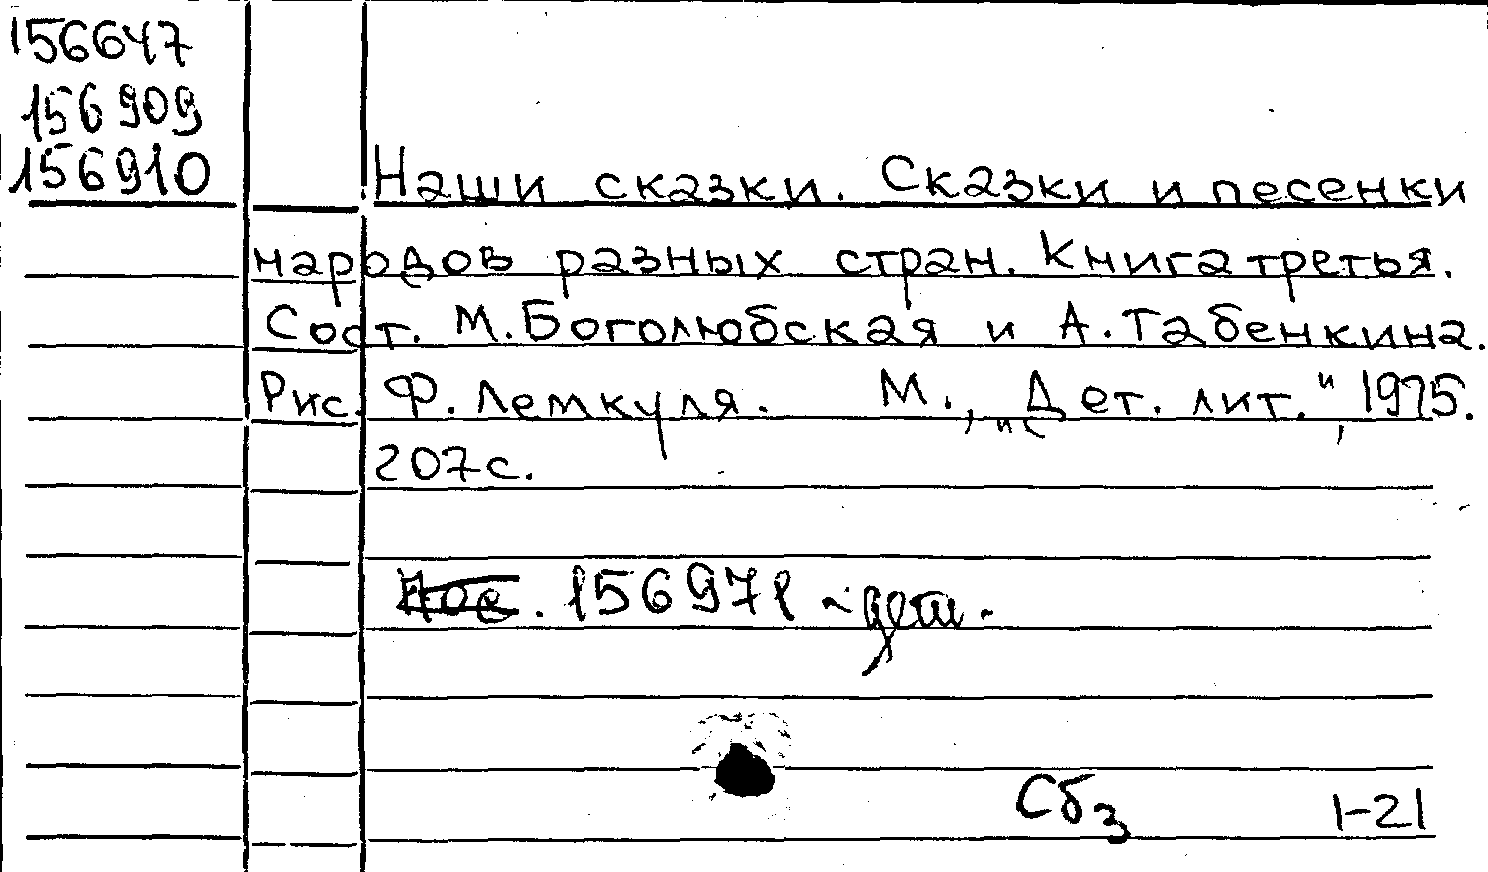 156647
156909
156910
Наши сказки. Сказки и песенки
народов разных стран. Книга третья.
Сост. М. Боголюбская и А. Табенкина.
Рис. Ф. Лемкуля. М., „Дет. лит.", 1975.
207с.
156971 - дет.
Сб3 1-21